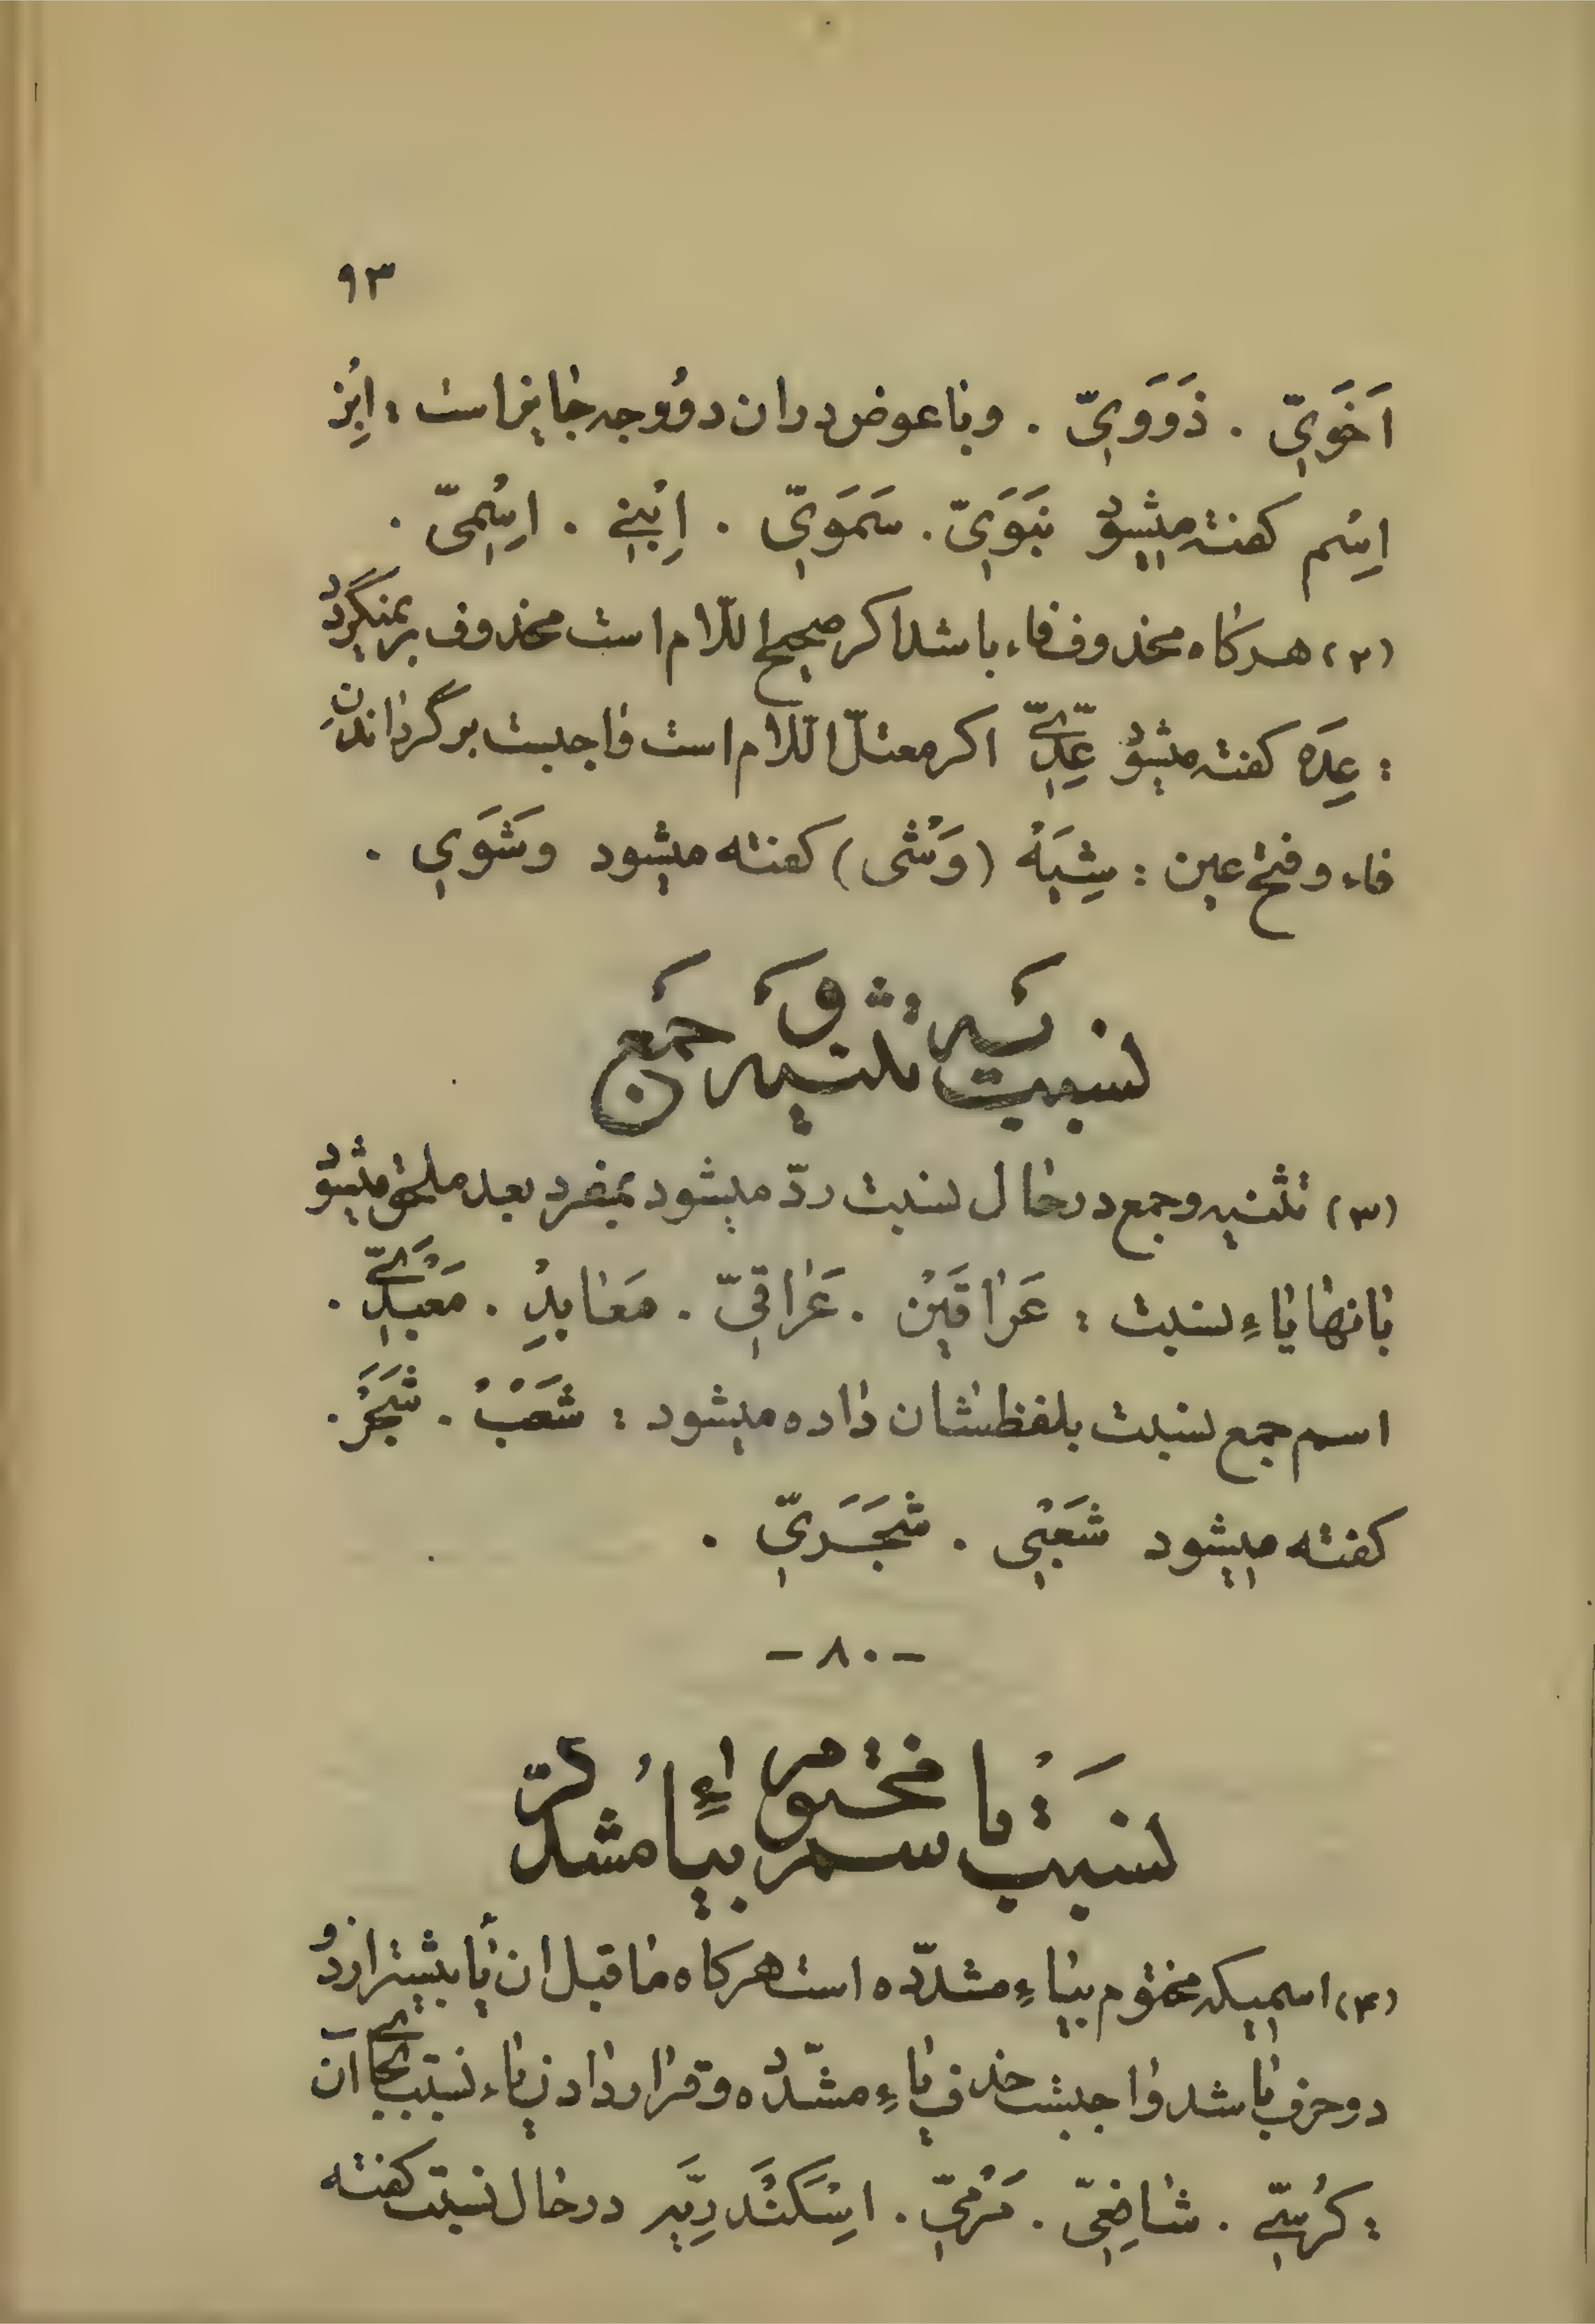 ۹۳
اَخَوَیّ . ذَوَوَیّ . و با عوض دران دو وجه جایز است : اِبْن
اِسْم کفته میشود بَنَوَیّ . سَمَوَیّ . اِبْنِی . اِسْمِیّ .
(۲) هرکاه محذوف فاء باشد اکر صحیح اللّام است محذوف برنمیگردد
: عِدَه کفته میشود عِدِیّ اکر معتلّ اللّام است واجبست برگرداندن
فاء و فتح عین : شِیَهْ (وَشْی) کفته میشود وَشَوَی .
نسبت به تثنیه و جمع
(۳) تثنیه و جمع در حال نسبت ردّ میشود بمفرد بعد ملحق میشود
بانها یاءِ نسبت : عَراقَیْن . عَراقیّ . مَعَابِدْ . مَعْبَدِیّ .
اسم جمع نسبت بلفظشان داده میشود : شَعْبْ . شَجَرْ .
کفته میشود شَعْبِی . شَجَـرِیّ .
- ۸۰ -
نسبت با سم مختوم بیاءِ مشدّد
(۴) اسمیکه مختوم بیاءِ مشدّده است هرکاه ماقبل ان یا بیشتر از دو
دو حرف باشد واجبست حذف یاءِ مشدّده و قرار دادن یاء نسبت بجای آن
: کُرْسِیّ . شافِعِیّ . مَرْمِیّ . اِسْکَنْدَرِیَّه در حال نسبت کفته